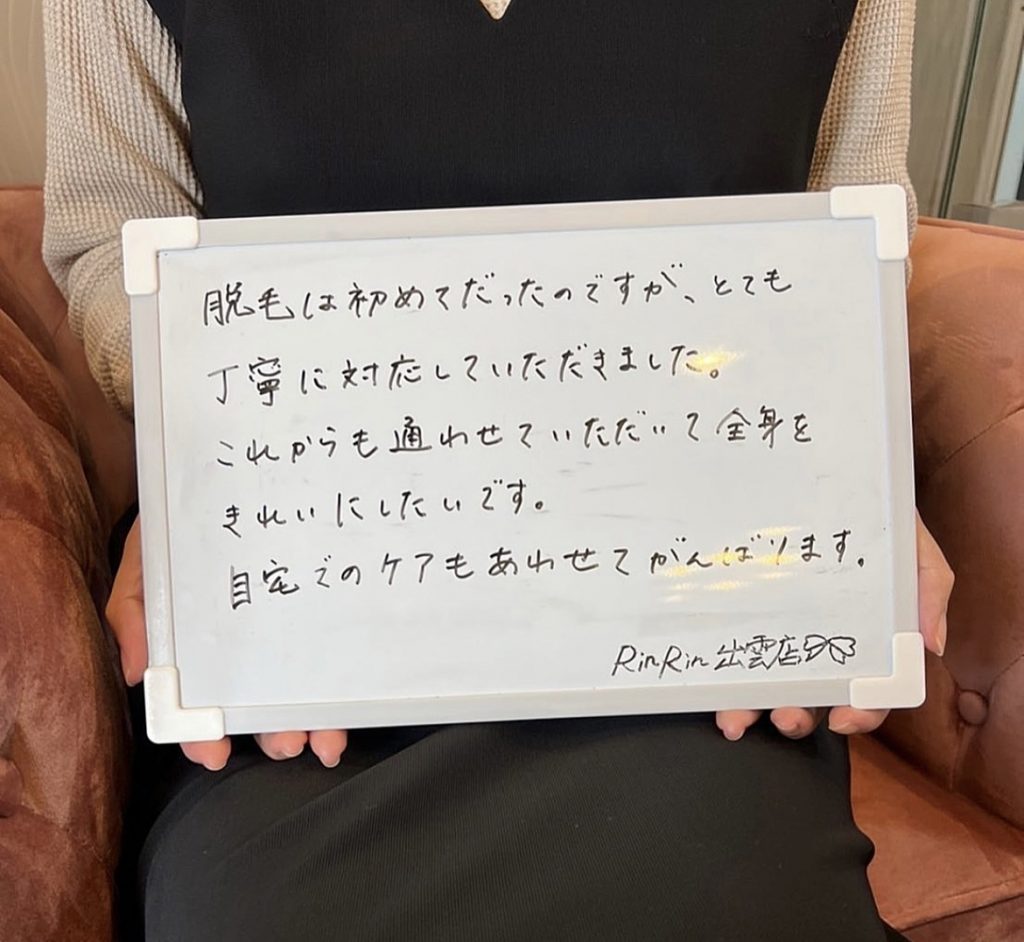 脱毛は初めてだったのですが、とても
丁寧に対応していただきました。
これからも通わせていただいて全身を
きれいにしたいです。
自宅でのケアもあわせてがんばります。
RinRin 出雲店